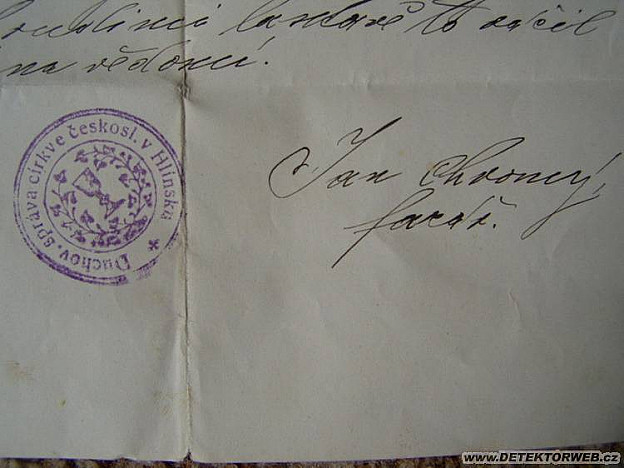 laskavě to ráčil
na vědomí.
Duchov. správa církve českosl. v Hlinsku
Jan Chromý,
farář.
WWW.DETEKTORWEB.CZ